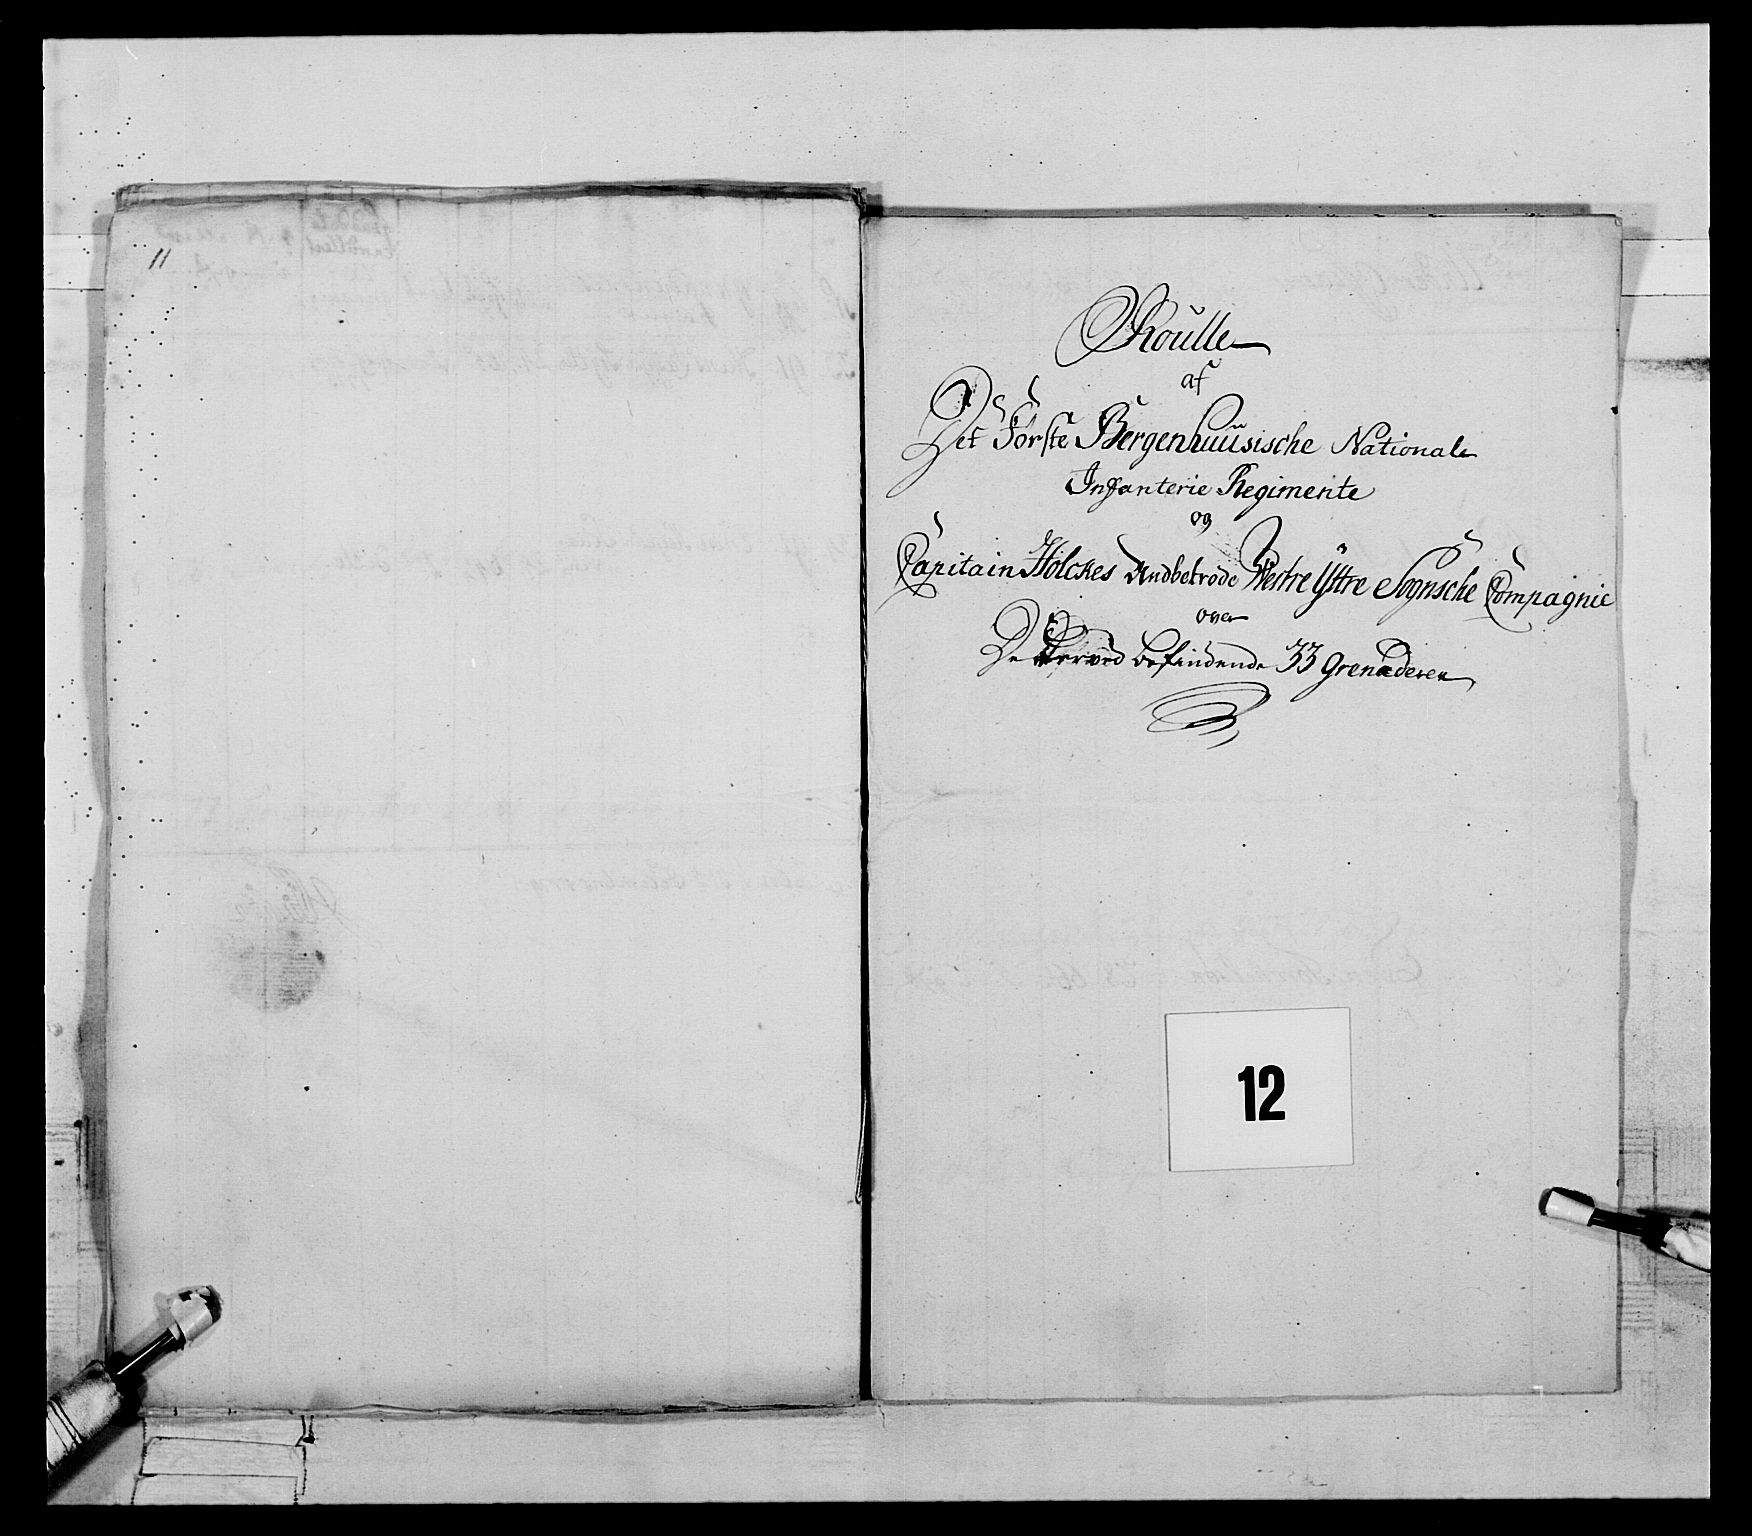 11
Roulle
af
Det Förste Bergenhuusische Nationale
Infanterie Regimente
og
Capitain Holckes Andbetrode Westre Yttre Sognsche Compagnie
over
De Herved befindende 33 Grenaderer
12